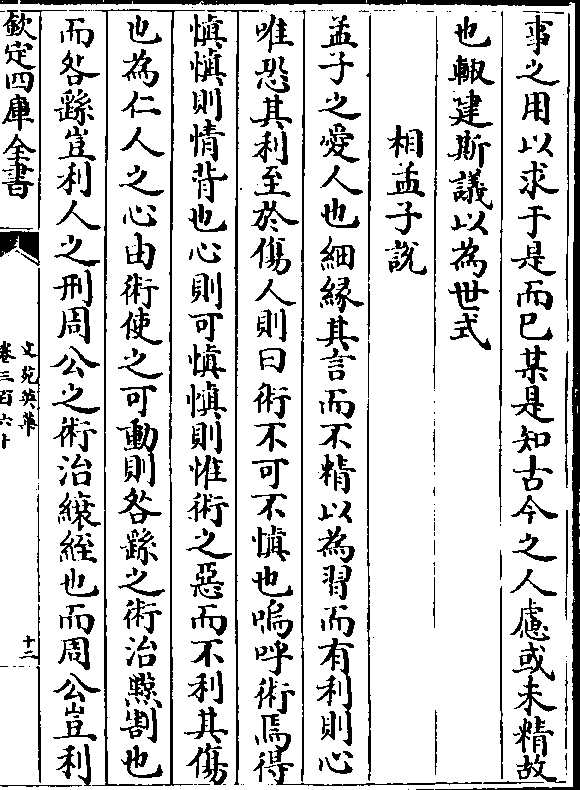 事之用以求于是而已某是知古今之人慮或未精故
也輙建斯議以為世式
相孟子說
孟子之愛人也細緣其言而不精以為習而有利則心
唯恐其利至於傷人則曰術不可不慎也嗚呼術焉得
慎慎則情背也心則可慎慎則惟術之惡而不利其傷
也為仁人之心由術使之可動則咎繇之術治黥割也
而咎繇豈利人之刑周公之術治縗絰也而周公豈利
欽定四庫全書
文苑英華
卷三百六十
十二